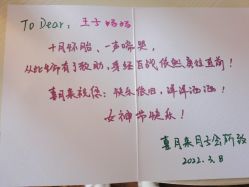 To Dear: 王子妈妈
十月怀胎、一声啼哭,
从此生命有了软肋,身经百战、依然勇往直前!
喜月来祝您:快乐依旧,洋洋洒洒!
女神节快乐!
喜月来月子会所敬
2022.3.8